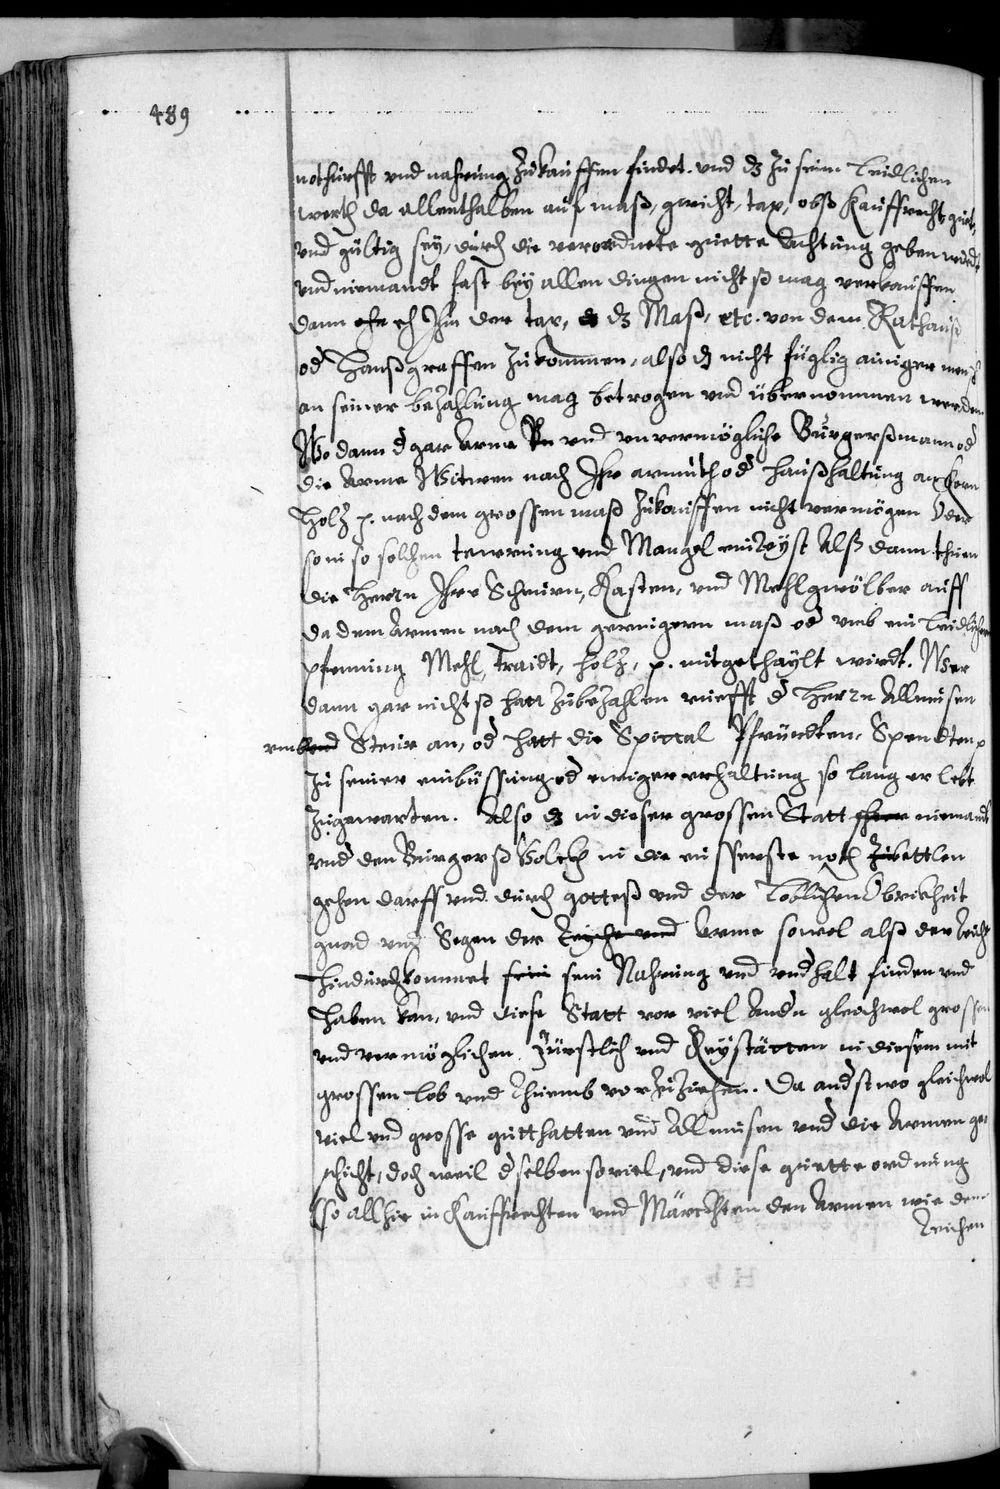 489
notturfft und nahrung zukauffen findet. und dz zu seim leidlichen
werth da allenthalben auf maß, gwicht, tax, obß kauffrecht, guet,
und gültig sey, durch die verordnete guette Achtung geben wirdt
und niemandt fast bey allen dingen nichtß mag verkauffen
dann ehe eß Ihm der tax, dz Maß, etc. von dem Rathauß
od Hanßgraffen zukommen, also dz nicht füglig ainiger mensch
an seiner bezahlung mag betrogen und übernommen werden
Wo dann d gar Arme und unvermögliche Burgerßmann od
die Arme Witwen nach Ihr armuth od haußhaltung an Korn
Holz p. nach dem grossen maß zukauffen nicht vermögen Oder
so solchen tewrung und Mangel einreyst Alß dann thuen
die Herrn Ihre Scheurn, Kasten, und Mehlgwölber auff
da dem Armen nach dem geringern maß od umb ein leidlichen
pfenning Mehl, Traidt, holz, p. mitgethaylt wirdt. Wer
dann gar nichtß hatt zubezahlen rüefft d Herrn Allmusen
umb Steur an, od hatt die Spittal Pfründten, Spendten p
zu seiner einbüssung od ewiger erhaltung so lang er lebt
zugewarten. Also dz in dieser grossen Statt niemandt
und den Burgerß Volckh in die eusserste noth bettlen
gehen darff und durch gotteß und der Loblichen Obrickheit
gnad und Segen der Reiche und Arme sowol alß der Reiche
hindurchkommet sein Nahrung und undhalt finden und
haben kan, und diese Statt vor viel Andn gleichwol grossen
und vermöglichen Fürstlich und Reystätten in diesem mit
grossen lob und Rhuemb vorzuziehen. Da andstwo gleichwol
viel und grosse gutthatten und Allmusen und die Armen ge-
schicht, doch weil dselben soviel, und diese guette ordnung
so allhie in Kauffrechten und Märckhten den Armen wie dem
Reichen